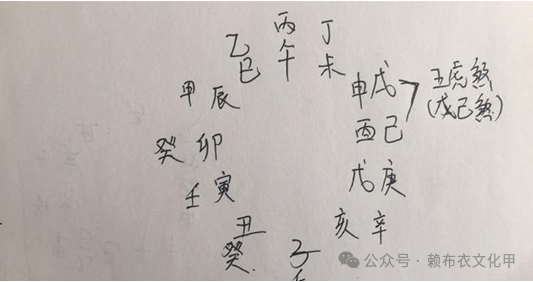 丙
午
丁
未
乙
巳
甲辰
申戊
五虎煞
(戊己煞)
酉己
癸卯
壬寅
戌庚
丑
癸
子
亥辛
公众号·赖布衣文化甲